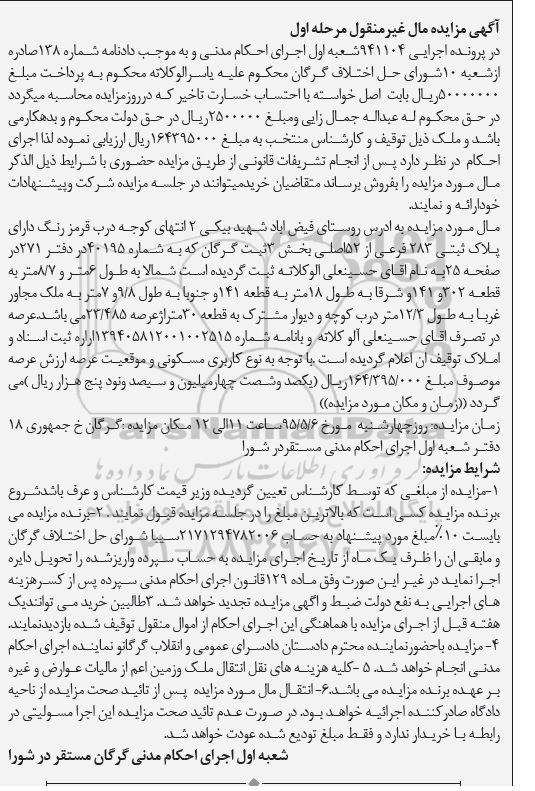 آگهی مزایده مال غیرمنقول مرحله اول
در پرونده اجرایی ۹۴۱۱۰۴شعبه اول اجرای احکام مدنی و به موجب دادنامه شماره ۱۳۸صادره
ازشعبه ۱۰شورای حل اختلاف گرگان محکوم علیه یاسرالوکلاته محکوم به پرداخت مبلغ
۵۰۰۰۰۰۰۰ریال بابت اصل خواسته با احتساب خسارت تاخیر که درروزمزایده محاسبه میگردد
در حق محکوم له عبداله جمال زایی ومبلغ ۲۵۰۰۰۰۰ریال در حق دولت محکوم و بدهکارمی
باشد و ملک ذیل توقیف و کارشناس منتخب به مبلغ ۱۶۴۳۹۵۰۰۰ریال ارزیابی نموده لذا اجرای
احکام در نظر دارد پس از انجام تشریفات قانونی از طریق مزایده حضوری با شرایط ذیل الذکر
مال مورد مزایده را بفروش برساند متقاضیان خریدمیتوانند در جلسه مزایده شرکت وپیشنهادات
خودارائه و نمایند.
مال مورد مزایده به ادرس روستای فیض اباد شهید بیکی ۲ انتهای کوجه درب قرمز رنگ دارای
پلاک ثبتی ۲۸۳ فرعی از ۵۲اصلی بخش ۳ثبت گرگان که به شماره ۴۰۱۹۵در دفتر ۲۷۱در
صفحه ۲۵به نام اقای حسینعلی الوکلاته ثبت گردیده است شمالا به طول ۶متر و ۸/۷متر به
قطعه ۳۰۲و ۱۴۱و شرقا به طول ۱۸متر به قطعه ۱۴۱و جنوبا به طول ۹/۸و ۷متر به ملک مجاور
غربا به طول ۱۲/۳متر درب کوچه و دیوار مشترک به قطعه ۳۰متراژعرصه ۲۳/۴۸۵می باشد.عرصه
در تصرف اقای حسینعلی آلو کلاته و بانامه شماره ۱۳۹۴۰۵۸۱۲۰۰۱۰۰۲۵۱۵اراره ثبت اسناد و
املاک توقیف ان اعلام گردیده است .با توجه به نوع کاربری مسکونی و موقعیت عرصه ارزش عرصه
موصوف مبلغ ۱۶۴/۳۹۵/۰۰۰ریال (یکصد وشصت چهارمیلیون و سیصد ونود پنج هزار ریال )می
گردد ((زمان و مکان مورد مزایده))
زمان مزایده: روزچهارشنبه مورخ ۹۵/۵/۶ساعت ۱۱الی ۱۲ مکان مزایده :گرگان خ جمهوری ۱۸
دفتر شعبه اول اجرای احکام مدنی مستقردر شورا
شرایط مزایده:
۱-مزایده از مبلغی که توسط کارشناس تعیین گردیده وزیر قیمت کارشناس و عرف باشدشروع
،برنده مزایده کسی است که بالاترین مبلغ را در جلسه مزایده قبول نمایند . ۲-برنده مزایده می
بایست ۱۰٪مبلغ مورد پیشنهاد به حساب ۲۱۷۱۲۹۴۷۸۲۰۰۶سیبا شورای حل اختلاف گرگان
و مابقی ان را ظرف یک ماه از تاریخ اجرای مزایده به حساب سپرده واریزشده را تحویل دایره
اجرا نماید در غیر این صورت وفق ماده ۱۲۹قانون اجرای احکام مدنی سپرده پس از کسرهزینه
های اجرایی به نفع دولت ضبط و اگهی مزایده تجدید خواهد شد. ۳طالبین خرید می توانندیک
هفته قبل از اجرای مزایده با هماهنگی این اجرای احکام از اموال منقول توقیف شده بازدیدنمایند.
۴- مزایده باحضورنماینده محترم دادستان دادسرای عمومی و انقلاب گرگانو نماینده اجرای احکام
مدنی انجام خواهد شد. ۵ -کلیه هزینه های نقل انتقال ملک وزمین اعم از مالیات عوارض و غیره
بر عهده برنده مزایده می باشد.۶- انتقال مال مورد مزایده پس از تائید صحت مزایده از ناحیه
دادگاه صادرکننده اجرائیه خواهد بود. در صورت عدم تائید صحت مزایده این اجرا مسولیتی در
رابطه با خریدار ندارد و فقط مبلغ تودیع شده عودت خواهد شد.
شعبه اول اجرای احکام مدنی گرگان مستقر در شورا